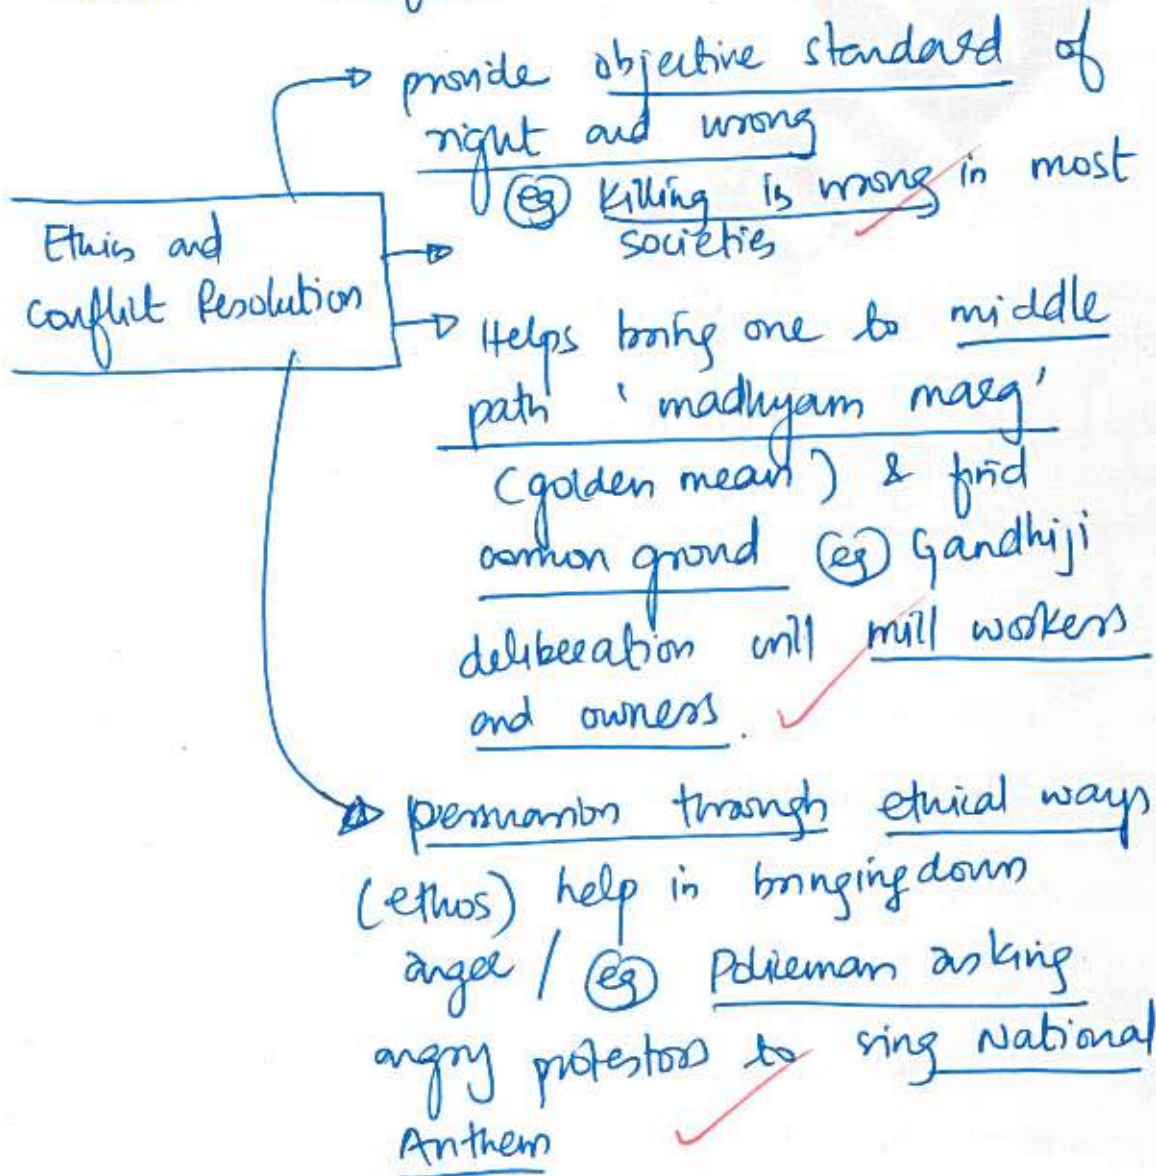 provide objective standard of
right and wrong
eg Killing is wrong in most
societies
Ethics and
Conflict Resolution
Helps bring one to middle
path 'madhyam marg'
(golden mean) & find
common grond eg Gandhiji
deliberation will mill workers
and owners.
persuasion through ethical ways
(ethos) help in bringing down
anger / eg Policeman asking
angry protestors to sing National
Anthem